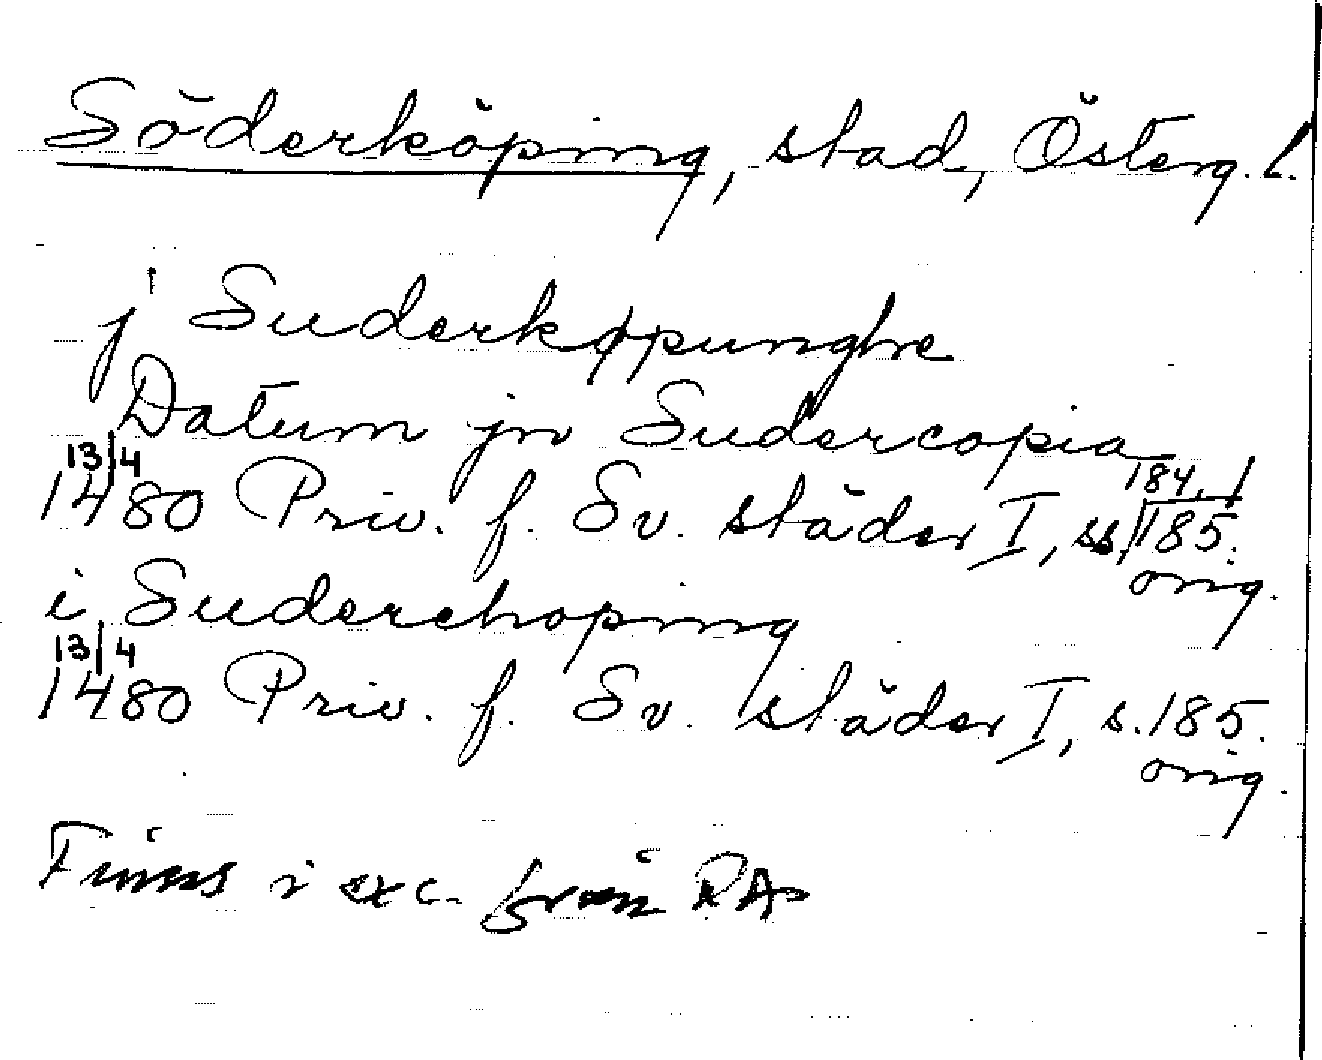 Söderköping, stad, Österg. l.
j Suderkøpunghe
Datum jn Sudercopia
13/4 1480 Priv. f. Sv. städer I, ss. 184, 185. orig.
i Suderchoping
13/4 1480 Priv. f. Sv. städer I, s. 185. orig.
Finns i exc. från RA